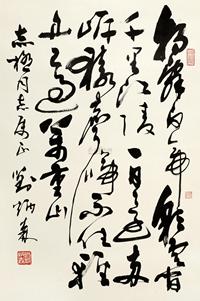 朝辭白帝彩雲間
千里江陵一日還兩
岸猿聲啼不住輕
舟已過萬重山
同志屬正 劉炳森